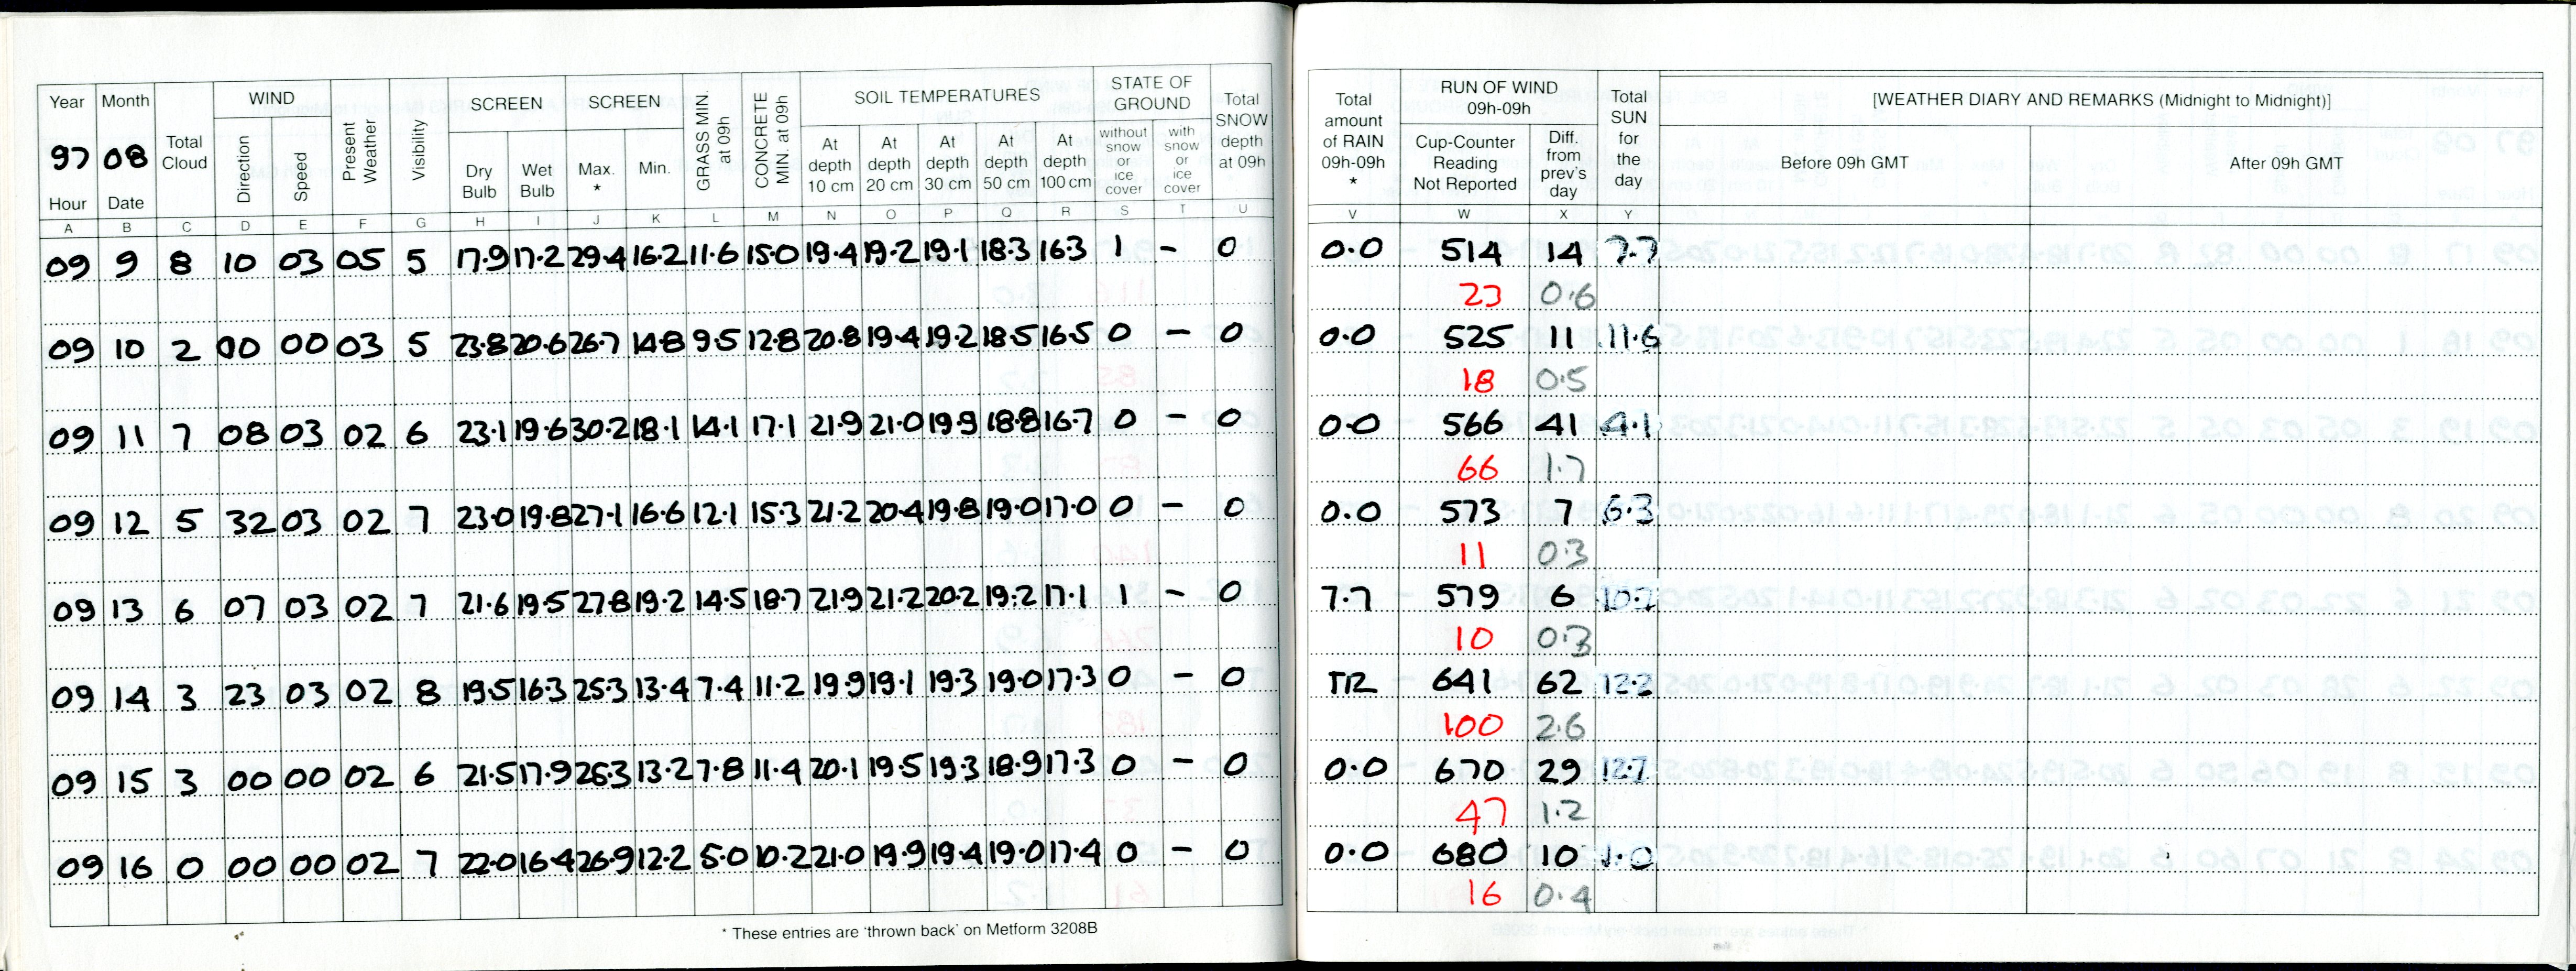 Year Month Total Cloud WIND Present Weather Visibility SCREEN SCREEN GRASS MIN. at 09h CONCRETE MIN. at 09h SOIL TEMPERATURES STATE OF GROUND Total SNOW depth at 09h Total amount of RAIN 09h-09h * RUN OF WIND 09h-09h Total SUN for the day [WEATHER DIARY AND REMARKS (Midnight to Midnight)]
97 08 Direction Speed Dry Bulb Wet Bulb Max. * Min. At depth 10 cm At depth 20 cm At depth 30 cm At depth 50 cm At depth 100 cm without snow or ice cover with snow or ice cover Cup-Counter Reading Not Reported Diff. from prev's day Before 09h GMT After 09h GMT
Hour Date
A B C D E F G H I J K L M N O P Q R S T U V W X Y
09 9 8 10 03 05 5 17.9 17.2 29.4 16.2 11.6 15.0 19.4 19.2 19.1 18.3 163 1 - 0 0.0 514 14 7.7
23 0.6
09 10 2 00 00 03 5 23.8 20.6 26.7 14.8 9.5 12.8 20.8 19.4 19.2 18.5 16.5 0 - 0 0.0 525 11 11.6
18 0.5
09 11 7 08 03 02 6 23.1 19.6 30.2 18.1 14.1 17.1 21.9 21.0 19.9 18.8 16.7 0 - 0 0.0 566 41 4.1
66 1.7
09 12 5 32 03 02 7 23.0 19.8 27.1 16.6 12.1 15.3 21.2 20.4 19.8 19.0 17.0 0 - 0 0.0 573 7 6.3
11 0.3
09 13 6 07 03 02 7 21.6 19.5 27.8 19.2 14.5 18.7 21.9 21.2 20.2 19.2 17.1 1 - 0 7.7 579 6 10.2
10 0.3
09 14 3 23 03 02 8 19.5 16.3 25.3 13.4 7.4 11.2 19.9 19.1 19.3 19.0 17.3 0 - 0 TR 641 62 12.2
100 2.6
09 15 3 00 00 02 6 21.5 17.9 26.3 13.2 7.8 11.4 20.1 19.5 19.3 18.9 17.3 0 - 0 0.0 670 29 12.7
47 1.2
09 16 0 00 00 02 7 22.0 16.4 26.9 12.2 5.0 10.2 21.0 19.9 19.4 19.0 17.4 0 - 0 0.0 680 10
16 0.4
* These entries are 'thrown back' on Metform 3208B